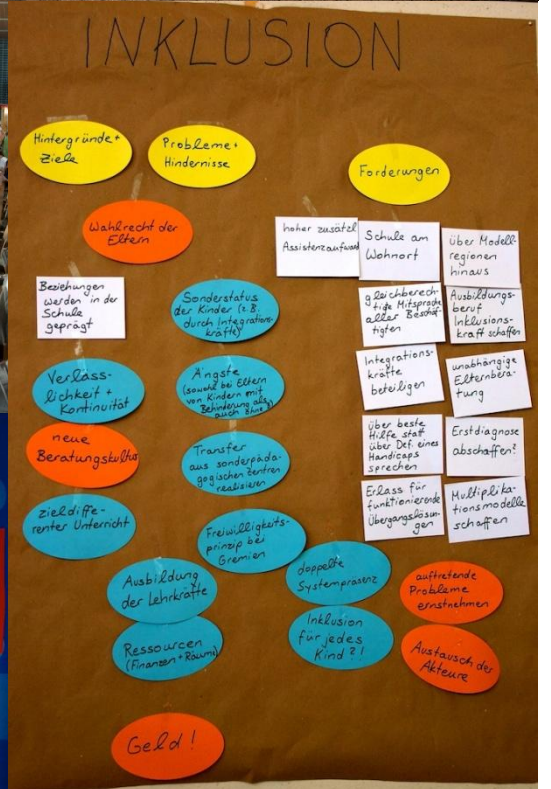 INKLUSION
Hintergründe +
Ziele
Probleme +
Hindernisse
Forderungen
Wahlrecht der
Eltern
Beziehungen
werden in der
Schule
geprägt
Verläss-
lichkeit +
Kontinuität
neue
Beratungskultur
zieldiffe-
renter Unterricht
Sonderstatus
der Kinder (z.B.
durch Integrations-
kräfte)
Ängste
(sowohl bei Eltern
von Kindern mit
Behinderung als
auch ohne)
Transfer
aus sonderpäda-
gogischen Zentren
realisieren
Freiwilligkeits-
prinzip bei
Gremien
Ausbildung
der Lehrkräfte
Ressourcen
(Finanzen + Räume)
Geld!
doppelte
Systempräsenz
Inklusion
für jedes
Kind?!
hoher zusätzl.
Assistenzaufwand
Schule am
Wohnort
über Modell-
regionen
hinaus
gleichberech-
tigte Mitsprache
aller Beschäf-
tigten
Ausbildungs-
beruf
Inklusions-
kraft schaffen
Integrations-
kräfte
beteiligen
unabhängige
Elternbera-
tung
über beste
Hilfe statt
über Def. eines
Handicaps
sprechen
Erstdiagnose
abschaffen?
Erlass für
funktionierende
Übergangslösun-
gen
Multiplika-
tionsmodelle
schaffen
auftretende
Probleme
ernstnehmen
Austausch der
Akteure